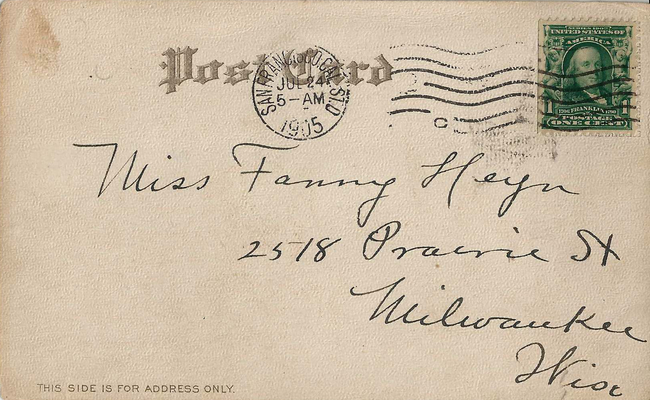 Post Card
SAN FRANCISCO, CAL. STA. D
JUL 24
5-AM
1905
SERIES 1902
UNITED STATES OF
AMERICA
1 FRANKLIN 1
POSTAGE
ONE CENT
Miss Fanny Heyn
2518 Prairie St
Milwaukee
Wisc
THIS SIDE IS FOR ADDRESS ONLY.